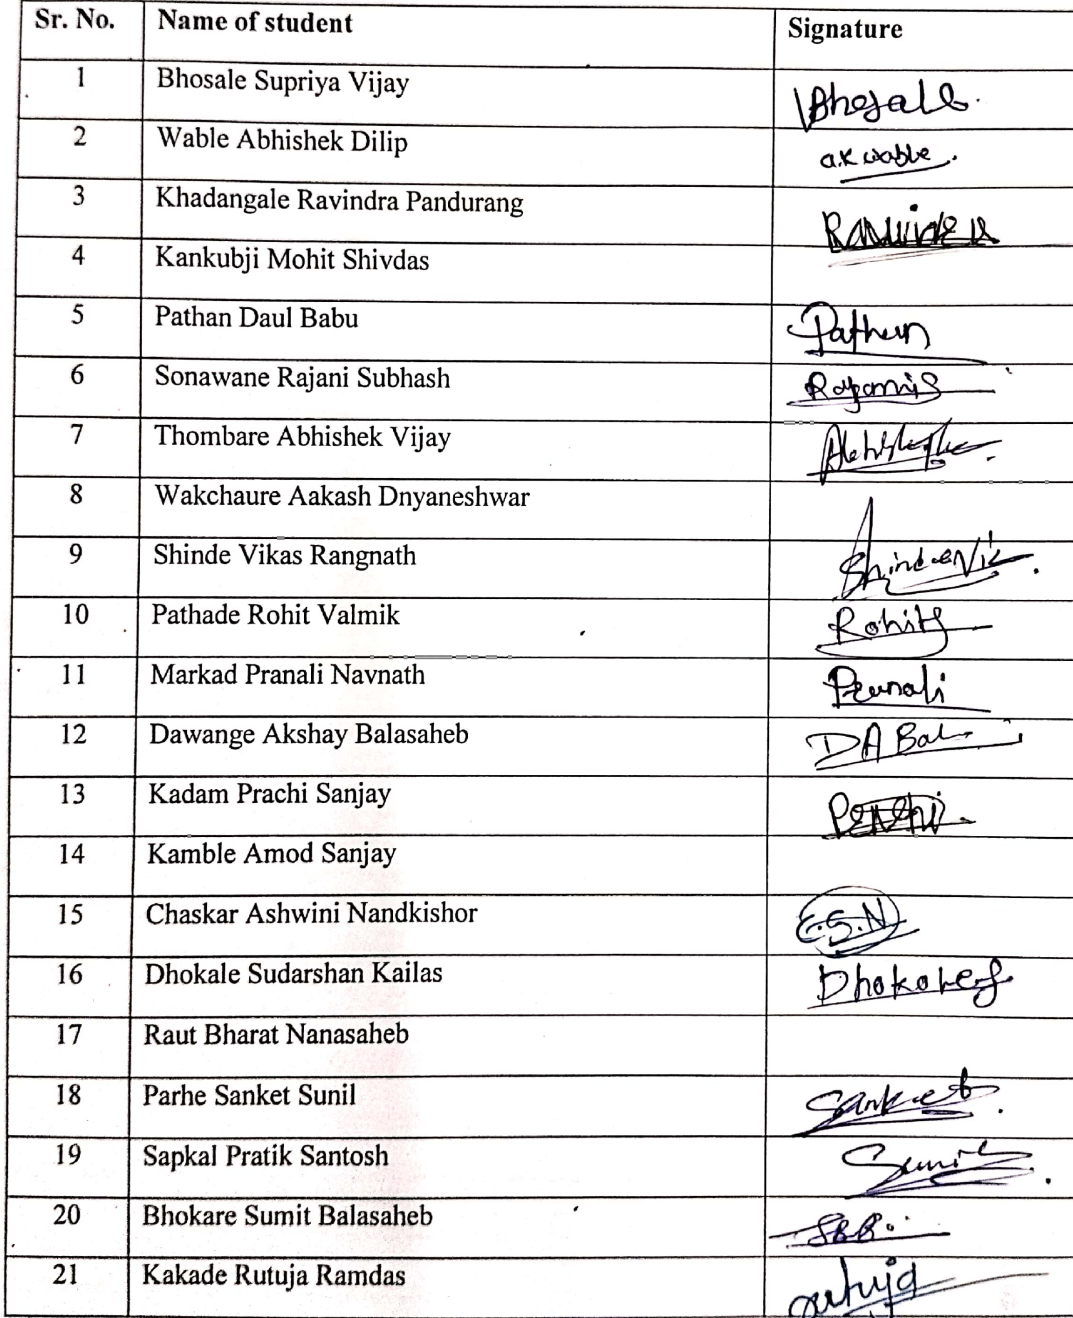 Sr. No. Name of student Signature
1 Bhosale Supriya Vijay Bhosale
2 Wable Abhishek Dilip a.k wable
3 Khadangale Ravindra Pandurang
4 Kankubji Mohit Shivdas
5 Pathan Daul Babu Pathan
6 Sonawane Rajani Subhash
7 Thombare Abhishek Vijay
8 Wakchaure Aakash Dnyaneshwar
9 Shinde Vikas Rangnath
10 Pathade Rohit Valmik Rohit
11 Markad Pranali Navnath Pranali
12 Dawange Akshay Balasaheb D A Bal
13 Kadam Prachi Sanjay
14 Kamble Amod Sanjay
15 Chaskar Ashwini Nandkishor
16 Dhokale Sudarshan Kailas
17 Raut Bharat Nanasaheb
18 Parhe Sanket Sunil Sanket
19 Sapkal Pratik Santosh
20 Bhokare Sumit Balasaheb SBB
21 Kakade Rutuja Ramdas